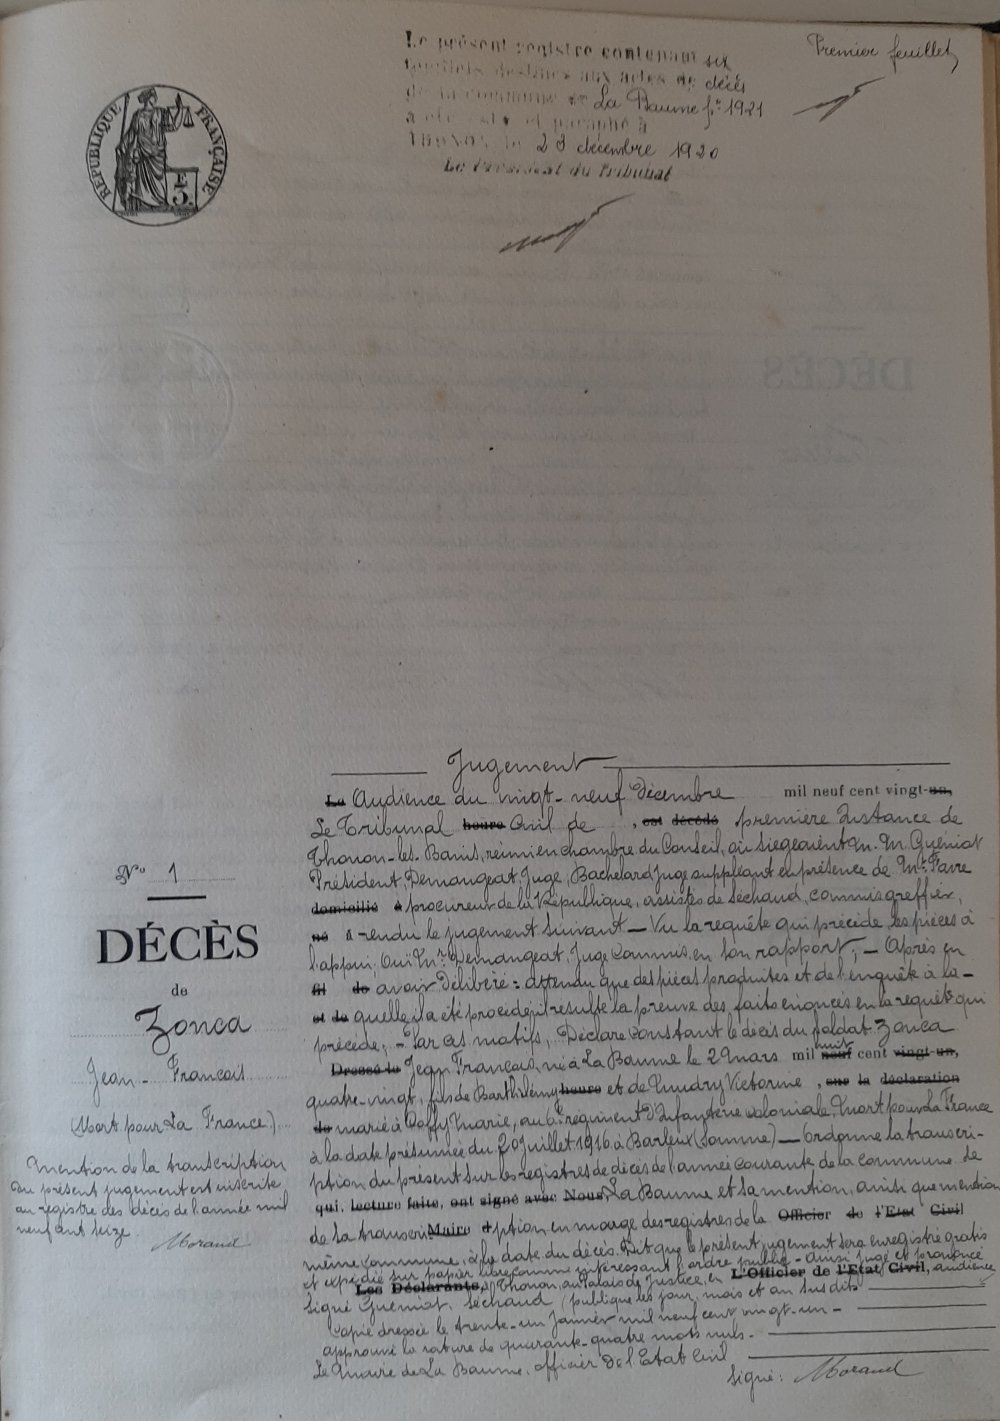 Premier feuillet
Le présent registre contenant six
feuillets destinés aux actes de décès
de la commune de La Baume pr 1921
a été coté et paraphé à
THONON, le 23 décembre 1920
Le Président du Tribunal
RÉPUBLIQUE FRANÇAISE
Jugement
Le Audience du vingt-neuf Décembre mil neuf cent vingt-un,
Le Tribunal heure Civil de , est décédé première Instance de
Thonon-les-Bains, réuni en chambre du Conseil, où siégeaient M. M. Guéniot
Président, Demangeat, Juge, Bachelard Juge suppléant en présence de Mr Favre
domicilié à procureur de la République, assistés de Séchaud, commis greffier,
né à rendu le jugement suivant — Vu la requête qui précède, les pièces à
l'appui, Ouï Mr Demangeat, Juge Commis en son rapport, — Après en
fil de avoir Délibéré : attendu que des pièces produites et de l'enquête à la-
et de quelle il a été procédé, il résulte la preuve des faits énoncés en la requête qui
précède; — Par ces motifs, Déclare Constant le décès du soldat Zonca
Dressé le Jean François, né à La Baume le 2 Mars mil neuf huit cent vingt-un,
quatre-vingt, fils de Barthélémy heure et de Mudry Victorine , sur la déclaration
de marié à Coffy Marie, au 6e régiment d'Infanterie coloniale, Mort pour La France
à la date présumée du 20 Juillet 1916 à Barleux (Somme) — Ordonne la transcri-
ption du présent sur les registres de décès de l'année courante de la commune de
qui, lecture faite, ont signé avec Nous, La Baume et sa mention, ainsi que mention
de la transcri Maire d ption en marge des registres de la Officier de l'Etat Civil
même commune, à la date du décès. Dit que le présent jugement sera enregistré gratis
et expédié sur papier libre comme intéressant l'ordre public - Ainsi jugé et prononcé
Les Déclarants, à Thonon, au Palais de Justice, en L'Officier de l'Etat Civil, audience
signé Guéniot, Séchaud (publique les jour, mois et an susdits
Copie dressée le trente-un Janvier mil neuf cent vingt-un -
approuvé la rature de quarante-quatre mots nuls. -
Le Maire de La Baume, officier de l'Etat Civil
Signé : Morand
No 1
DÉCÈS
de
Zonca
Jean-François
(Mort pour La France)
Mention de la transcription
du présent jugement est inscrite
au registre des décès de l'année mil
neuf cent seize.
Morand